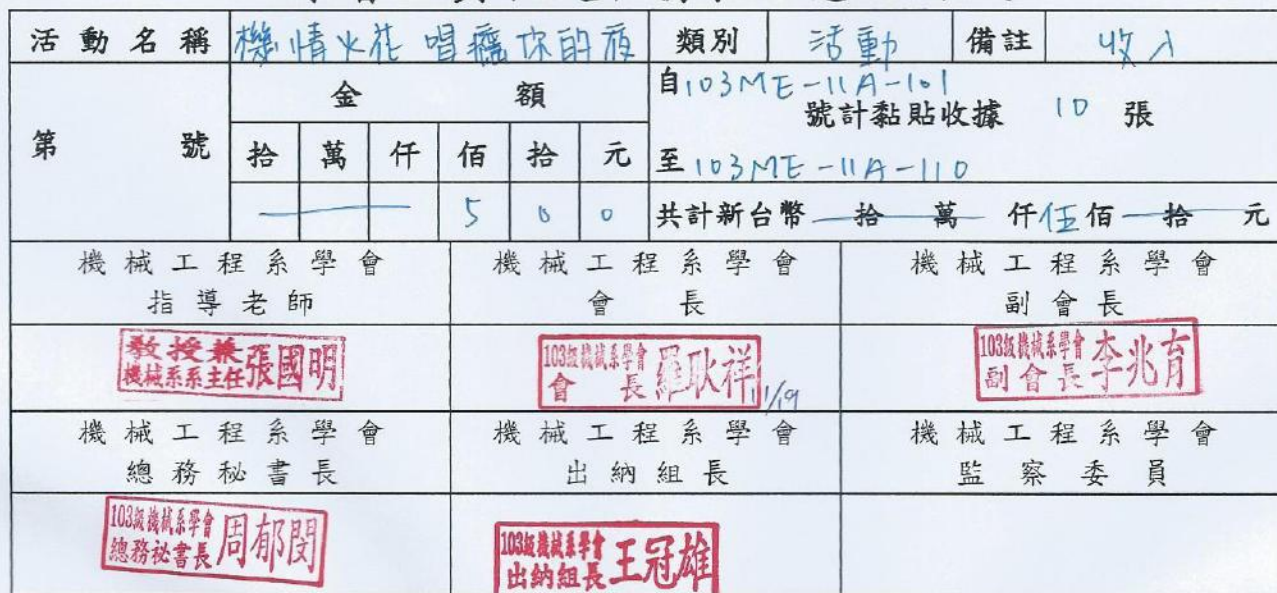 活動名稱 機情火花 唱癮你的夜 類別 活動 備註 收入
第 號 金 額
拾 萬 仟 佰 拾 元
5 0 0
自103ME-11A-101
號計黏貼收據 10 張
至103ME-11A-110
共計新台幣 拾 萬 仟 伍 佰 拾 元
機械工程系學會 機械工程系學會 機械工程系學會
指導老師 會長 副會長
教授兼
機械系系主任 張國明
103級機械系學會
會長 羅耿祥
11/19
103級機械系學會
副會長 李兆育
機械工程系學會 機械工程系學會 機械工程系學會
總務秘書長 出納組長 監察委員
103級機械系學會
總務祕書長 周郁閔
103級機械系學會
出納組長 王冠雄